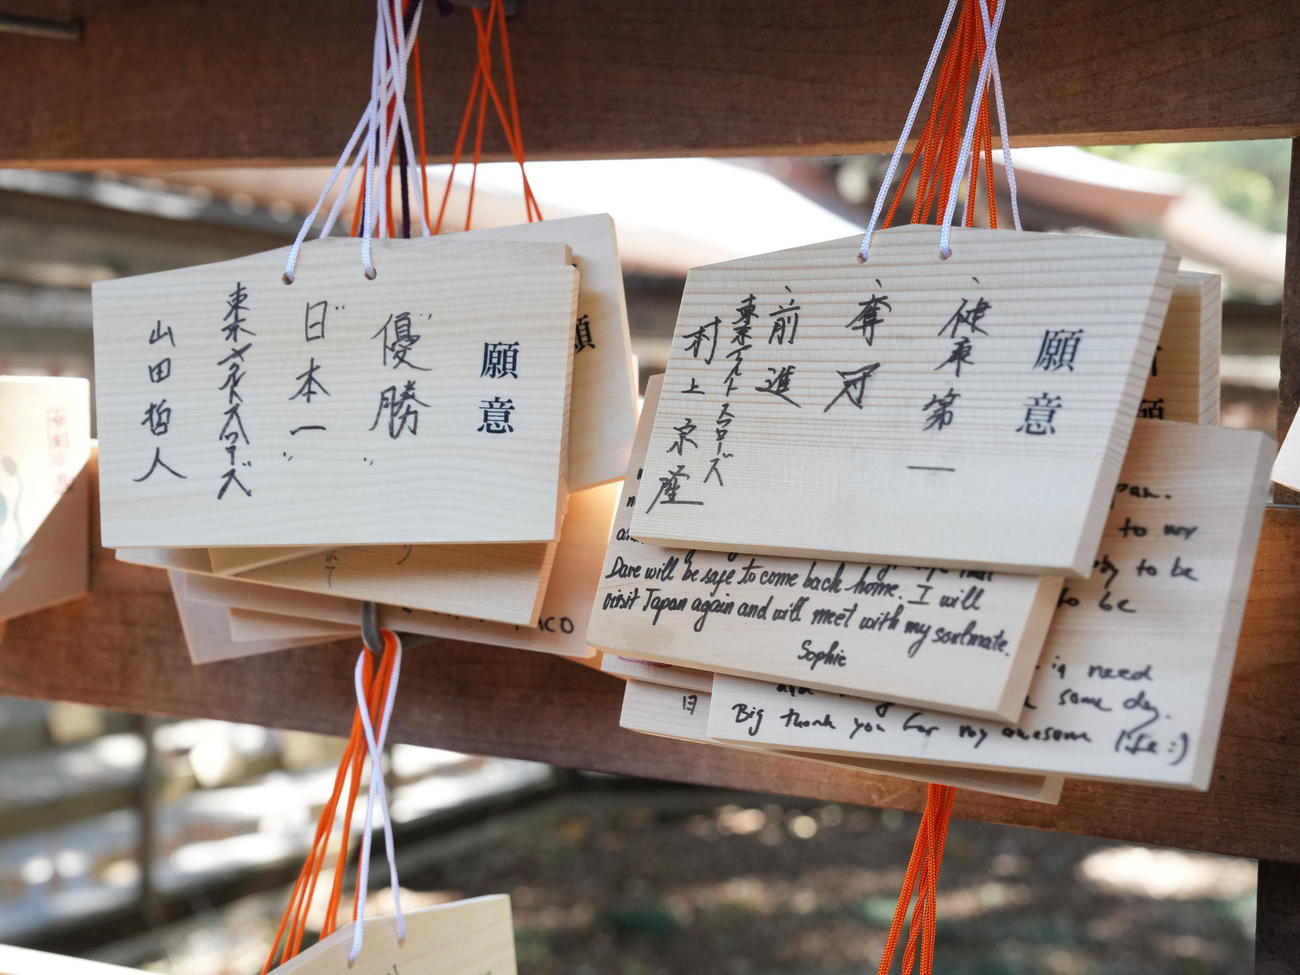 願意
優勝
日本一
東京ヤクルトスワローズ
山田哲人
願
ACO
願意
、健康第一
、奪冠
、前進
東京ヤクルトスワローズ
村上宗隆
Dare will be safe to come back home. I will
visit Japan again and will meet with my soulmate.
Sophie
to my
to be
to be
need
same day.
Big thank you for my awesome life :)